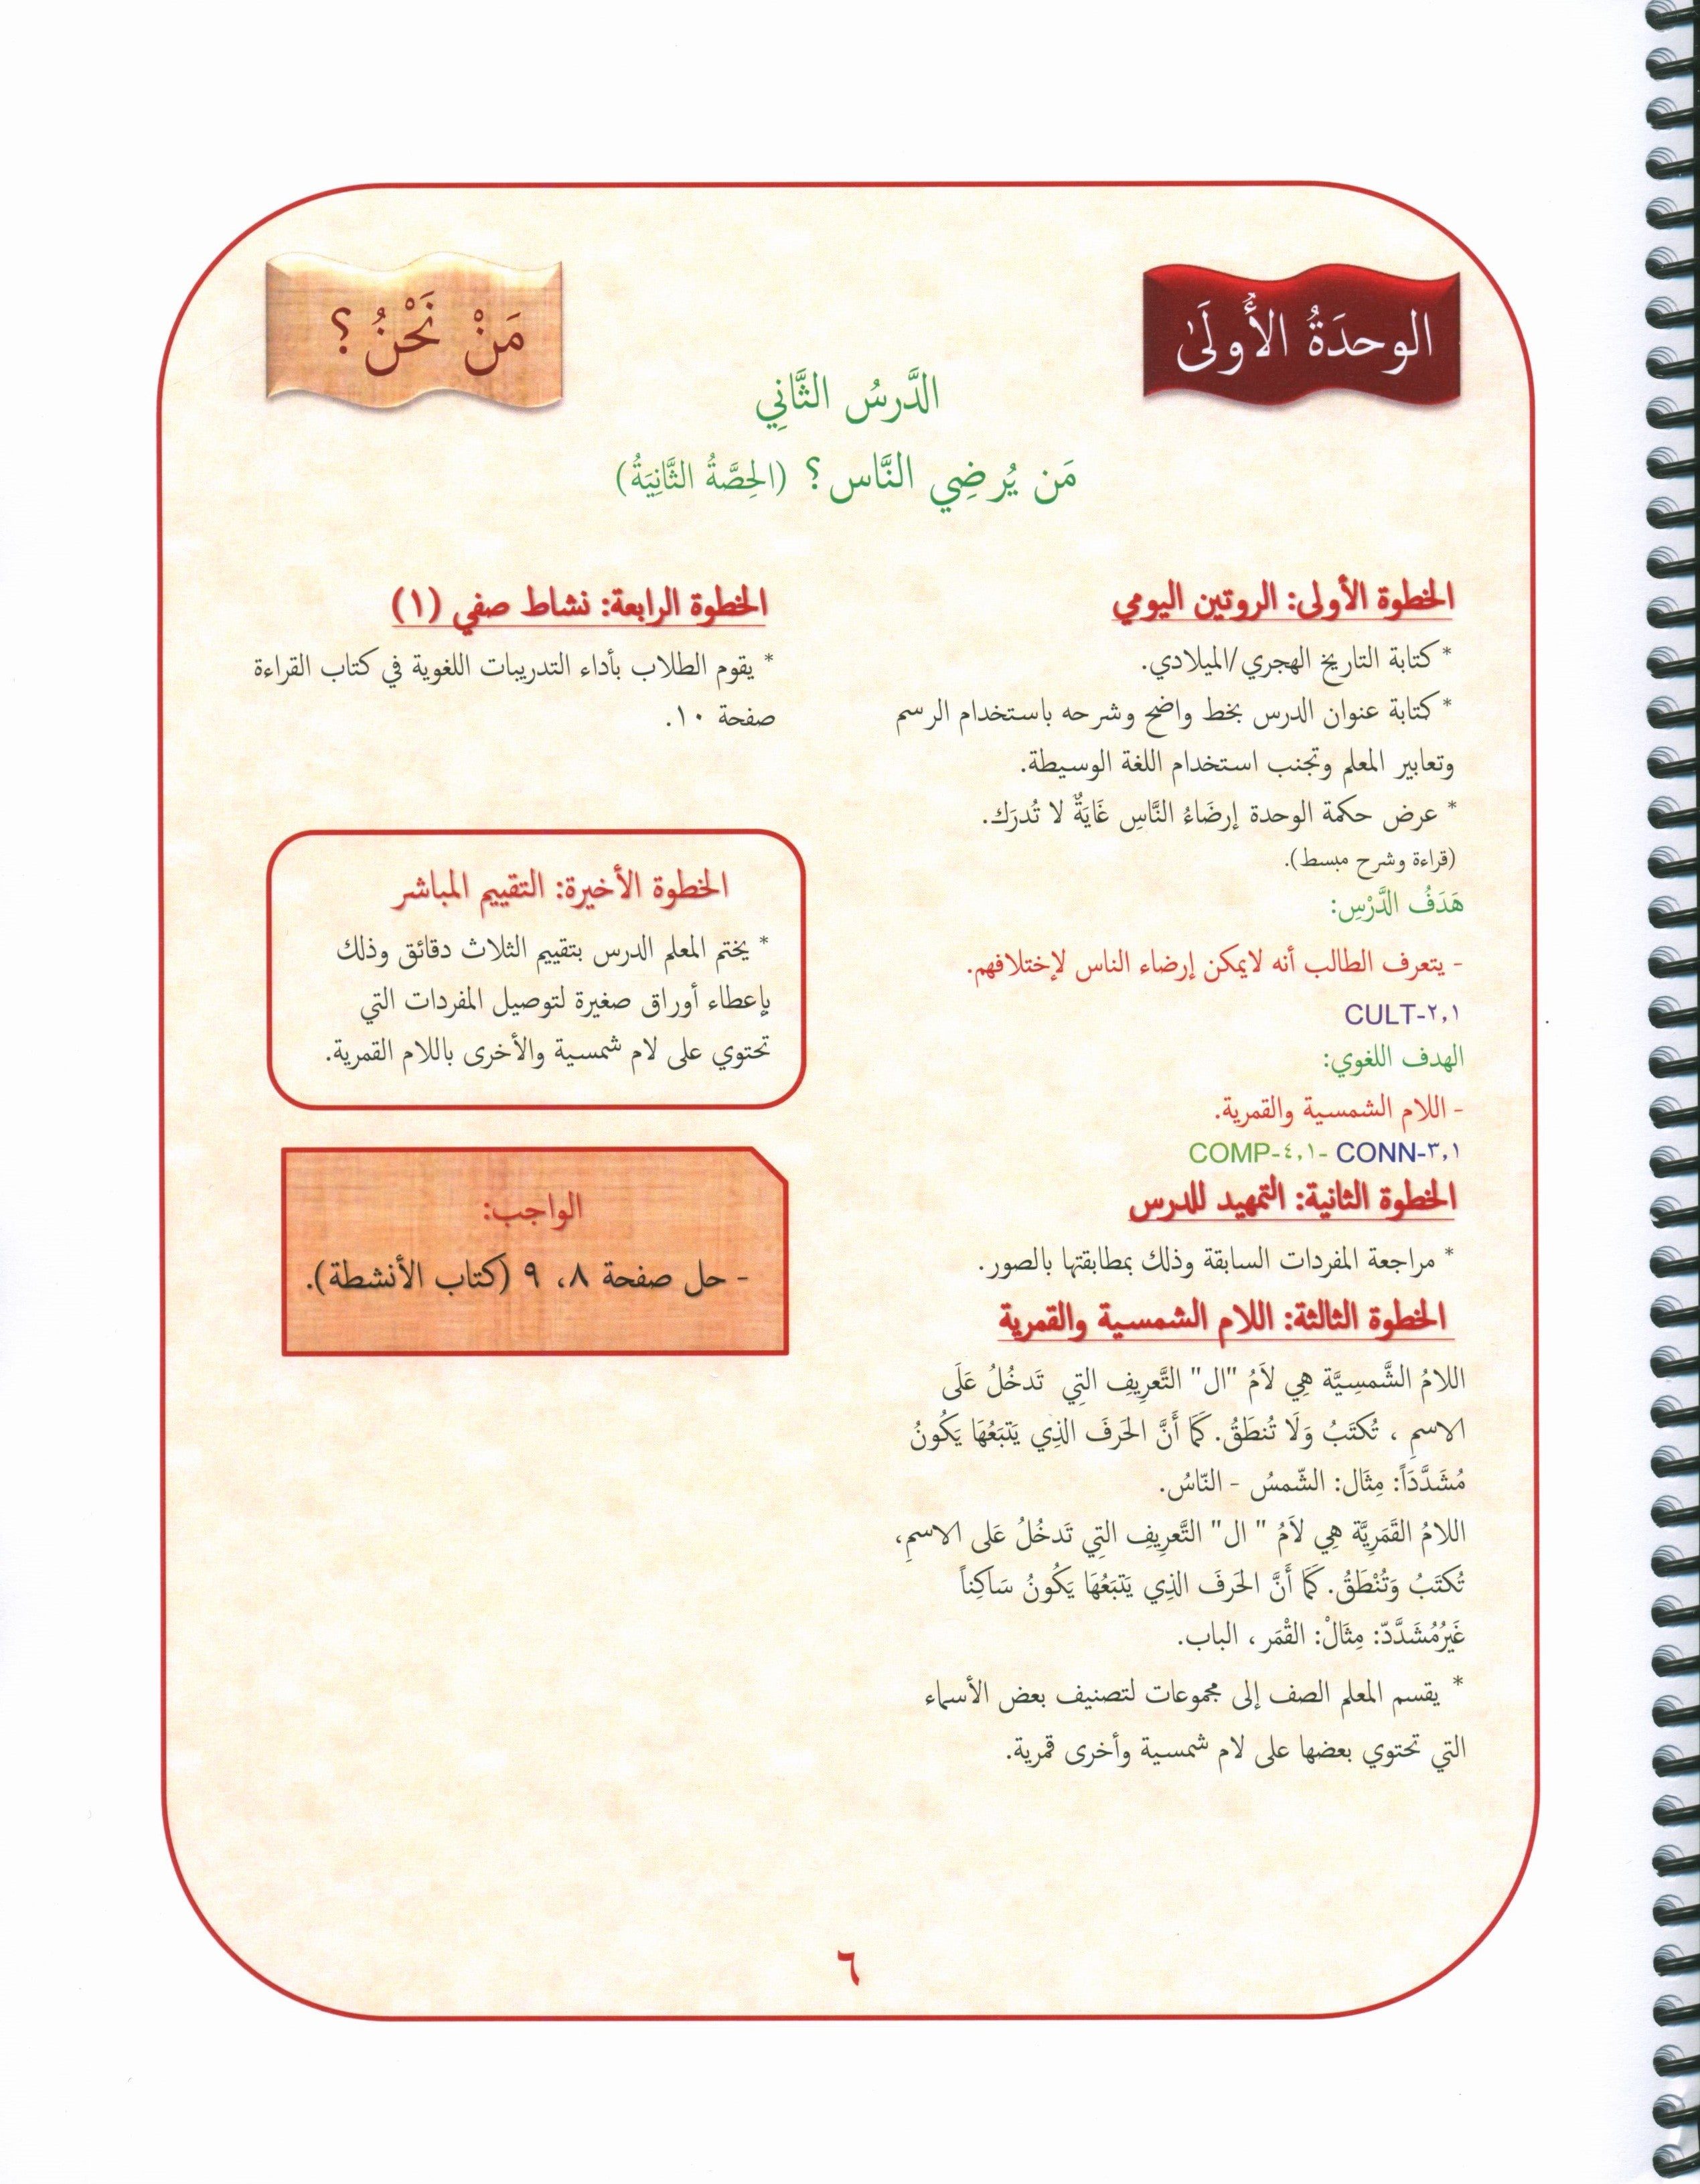 الوحدَةُ الأُولَىٰ
مَنْ نَحْنُ ؟
الدَّرسُ الثَّانِي
مَن يُرضِي النَّاس؟ (الحِصَّةُ الثَّانِيَةُ)
الخطوة الأولى: الروتين اليومي
* كتابة التاريخ الهجري/الميلادي.
* كتابة عنوان الدرس بخط واضح وشرحه باستخدام الرسم
وتعابير المعلم وتجنب استخدام اللغة الوسيطة.
* عرض حكمة الوحدة إرضَاءُ النَّاسِ غَايَةٌ لا تُدرَك.
(قراءة وشرح مبسط).
هَدَفُ الدَّرْسِ:
- يتعرف الطالب أنه لايمكن إرضاء الناس لإختلافهم.
CULT-٢,١
الهدف اللغوي:
- اللام الشمسية والقمرية.
COMP-٤,١- CONN-٣,١
الخطوة الثانية: التمهيد للدرس
* مراجعة المفردات السابقة وذلك بمطابقتها بالصور.
الخطوة الثالثة: اللام الشمسية والقمرية
اللامُ الشَّمسِيَّة هِي لاَمُ "ال" التَّعرِيفِ التِي تَدخُلُ عَلَى
الاسمِ ، تُكتَبُ وَلَا تُنطَقُ. كَمَا أَنَّ الحَرفَ الذِي يَتبَعُهَا يَكُونُ
مُشَدَّدَاً: مِثَال: الشّمسُ - النّاسُ.
اللامُ القَمَرِيَّة هِي لاَمُ " ال" التَّعرِيفِ التِي تَدخُلُ عَلى الاسمِ،
تُكتَبُ وَتُنْطَقُ. كَمَا أَنَّ الحَرفَ الذِي يَتبَعُهَا يَكُونُ سَاكِناً
غَيرُمُشَدَّدّ: مِثَالْ: القْمَر ، الباب.
* يقسم المعلم الصف إلى مجموعات لتصنيف بعض الأسماء
التي تحتوي بعضها على لام شمسية وأخرى قمرية.
الخطوة الرابعة: نشاط صفي (١)
* يقوم الطلاب بأداء التدريبات اللغوية في كتاب القراءة
صفحة ١٠.
الخطوة الأخيرة: التقييم المباشر
* يختم المعلم الدرس بتقييم الثلاث دقائق وذلك
بإعطاء أوراق صغيرة لتوصيل المفردات التي
تحتوي على لام شمسية والأخرى باللام القمرية.
الواجب:
- حل صفحة ٨، ٩ (كتاب الأنشطة).
٦